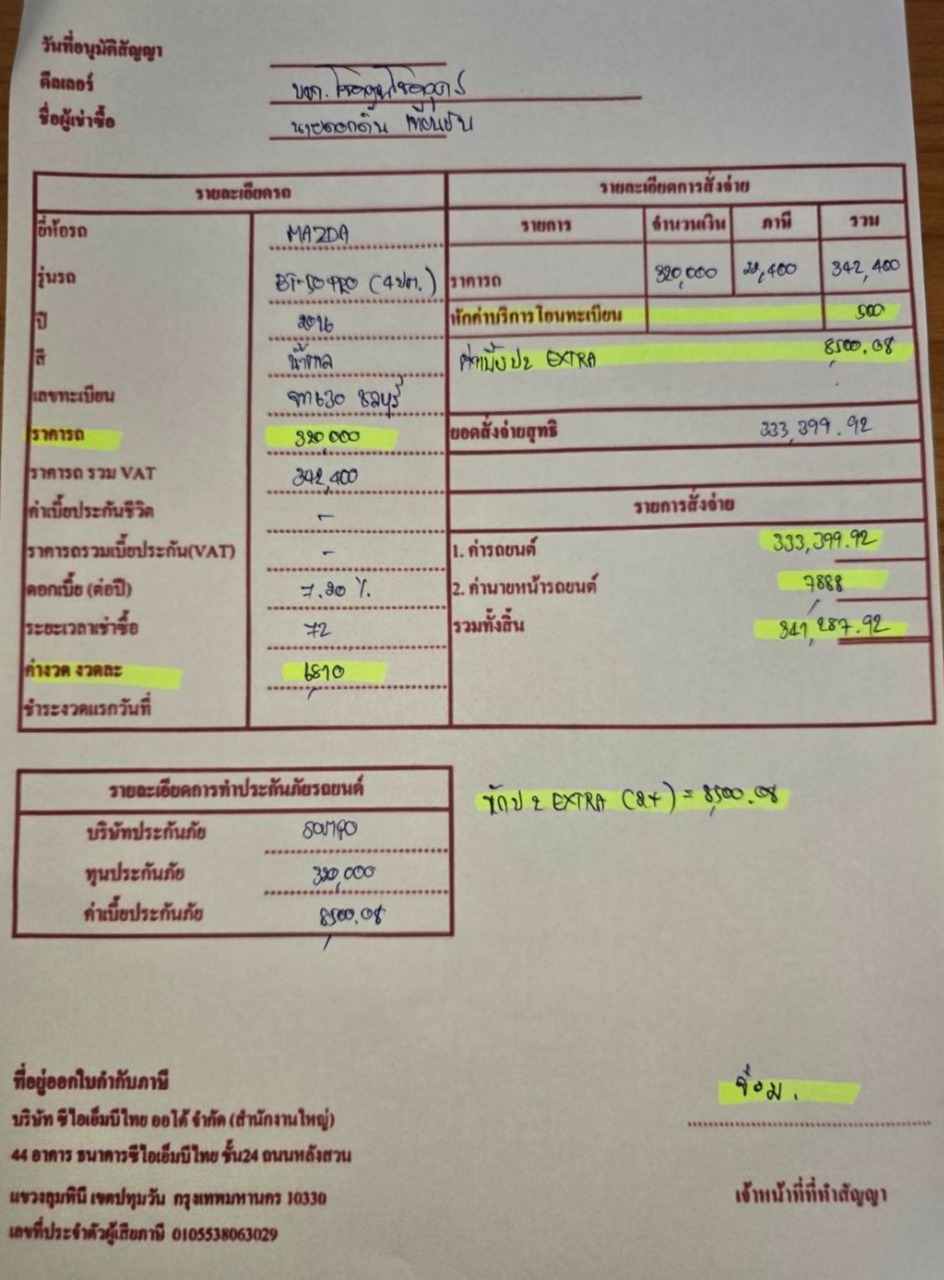 วันที่อนุมัติสัญญา
ดีลเลอร์ บจก.
ชื่อผู้เช่าซื้อ
รายละเอียดรถ
ยี่ห้อรถ MAZDA
รุ่นรถ BT-50 PRO (4ปต.)
ปี 2016
สี น้ำตาล
เลขทะเบียน ชลบุรี
ราคารถ 320,000
ราคารถ รวม VAT 342,400
ค่าเบี้ยประกันชีวิต -
ราคารถรวมเบี้ยประกัน(VAT) -
ดอกเบี้ย (ต่อปี) 7.20 %.
ระยะเวลาเช่าซื้อ 72
ค่างวด งวดละ 6,810
ชำระงวดแรกวันที่
รายละเอียดการสั่งจ่าย
รายการ จำนวนเงิน ภาษี รวม
ราคารถ 320,000 22,400 342,400
หักค่าบริการโอนทะเบียน 500
ค่าเบี้ยป2 EXTRA 8,500.08
ยอดสั่งจ่ายสุทธิ 333,399.92
รายการสั่งจ่าย
1. ค่ารถยนต์ 333,399.92
2. ค่านายหน้ารถยนต์ 7,888
รวมทั้งสิ้น 341,287.92
รายละเอียดการทำประกันภัยรถยนต์
บริษัทประกันภัย SOMPO
ทุนประกันภัย 320,000
ค่าเบี้ยประกันภัย 8,500.08
หักป2 EXTRA (2+) = 8,500.08
ที่อยู่ออกใบกำกับภาษี
บริษัท ซีไอเอ็มบีไทย ออโต้ จำกัด (สำนักงานใหญ่)
44 อาคาร ธนาคารซีไอเอ็มบีไทย ชั้น24 ถนนหลังสวน
แขวงลุมพินี เขตปทุมวัน กรุงเทพมหานคร 10330
เลขที่ประจำตัวผู้เสียภาษี 0105538063029
เจ้าหน้าที่ที่ทำสัญญา